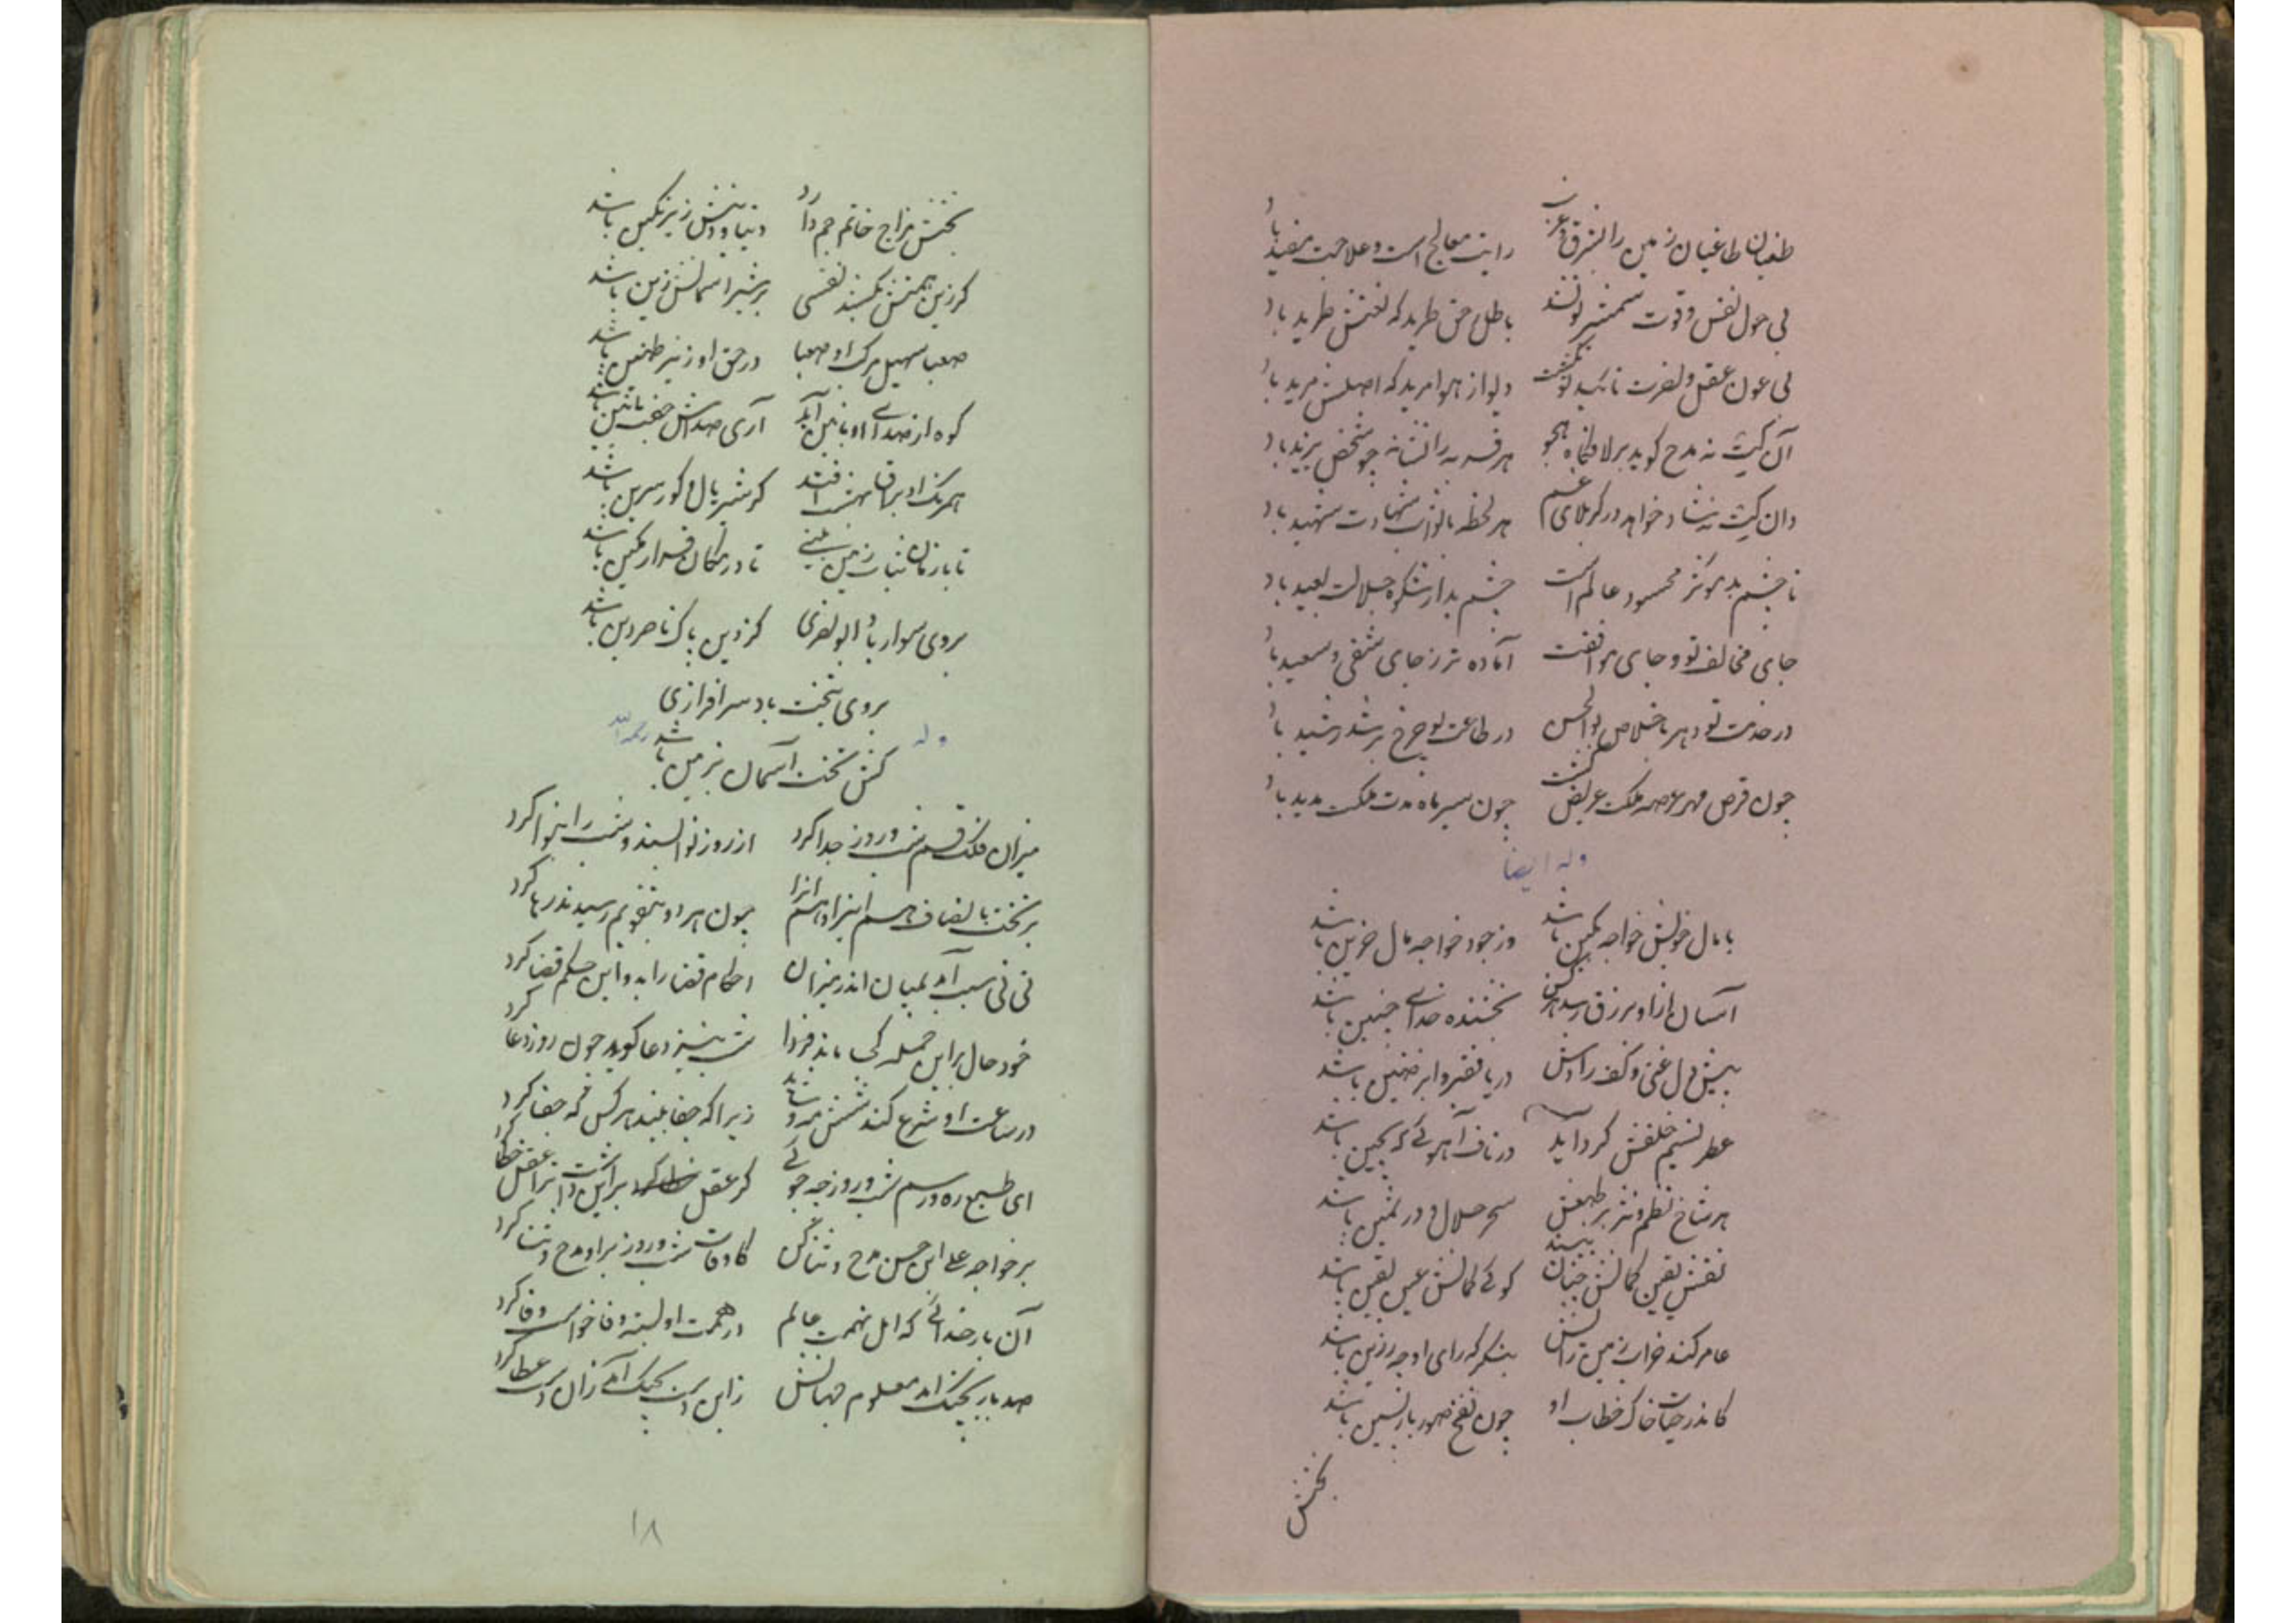 طغیان طاغیان زمین را بشرق و غرب رایت معالج است و علاجت مفید باد
بی حول نفس و قوت شمشیر تو نشد باطل حق طرید که لعنتش طرید باد
بی عون عقل و نصرت تائید تو نگشت دیو از هوا مرید که اصلش مرید باد
آن کیت نه مدح گوید بر لاف‌گاه هجو هر قسم به را نشانه چو شخص یزید باد
وان کیت نه شاد خواهد در کربلای غم هر لحظه با ثواب شهادت شهید باد
تا چشم بد موثر محسود عالم است چشم بد از شکوه جلالت بعید باد
جای مخالف تو و جای موافقت آماده تر ز جای شقی و سعید باد
در خدمت تو دهر باخلاص بوالحسن در طاعت تو چرخ برشد رشید باد
چون قرص مهر عرصه ملکت عریض گشت چون سیر ماه مدت ملکت مدید باد
وله ایضا
با مال خویش خواجه بکین باشد وز جود خواجه مال حزین باشد
آسان ازاو برزق رسد هرکس بخشنده خدای چنین باشد
پیش دل غنی و کف رادش دریا فقیر و ابر ضنین باشد
عطر نسیم خلقش گرد آید در ناف آهوئی که بچین باشد
هر شاخ نظم و نثر بر طبعش سحر حلال و در ثمین باشد
نقش یقین گمانش چنان بیند گوئی گمانش عین یقین باشد
عامر کند خراب زمین رایش بنگر که رای او چه رزین باشد
کاندر حیات خاک خطاب او چون نفخ صور بازپسین باشد
بخشش
بخشش مزاج خاتم جم دارد دنیا و دینش زیر نگین باشد
گر زین همتش بکشد نفسی بر شیر آسمانش زین باشد
صعبا سهیل مرگ او صعبا در حق او زئیر طنین باشد
کوه از صدای او بانین آید آری صداش جفت انین باشد
همرنگ او براق بهشت افتد گر شیر یال و گور سرین باشد
تا بازمان ثبات زمین بینی تا در مکان قرار مکین باشد
بروی سوار باد ابو نصری کز دین پاک ناصر دین باشد
بروی بتخت باد سرافرازی
وله رحمه الله
کش تخت آسمان بزمین باشد
میزان فلک قسم شب و روز جدا کرد از روز نوا بستد و شب را بنوا کرد
برتخت بانصاف هم اینرا و هم آنرا چون هر دو بتقویم رسیدند رها کرد
نی نی سبب آمد بمیان اندر میزان احکام قضا راند و این حکم قضا کرد
خود حال بر این جمله کی ماند فردا شب نیز دعا گوید چون روز دعا کرد
در ساعت او شرع کند شمس مه و زیرا که جفا بیند هر کس که جفا کرد
ای طبع ره و رسم شب و روز چه جوئی گر عقل بر این داشت ترا عقل خطا کرد
بر خواجه علی ابن حسن مدح و ثنا کن کاوقات شب و روز بر او مدح و ثنا کرد
آن بار خدائی که امل نهمت عالم در همت او بسته وفا خواست وفا کرد
صد بار بجنگ آمد معلوم جهانش زاین دست بچنگ آمد زان دست عطا کرد
۱۸